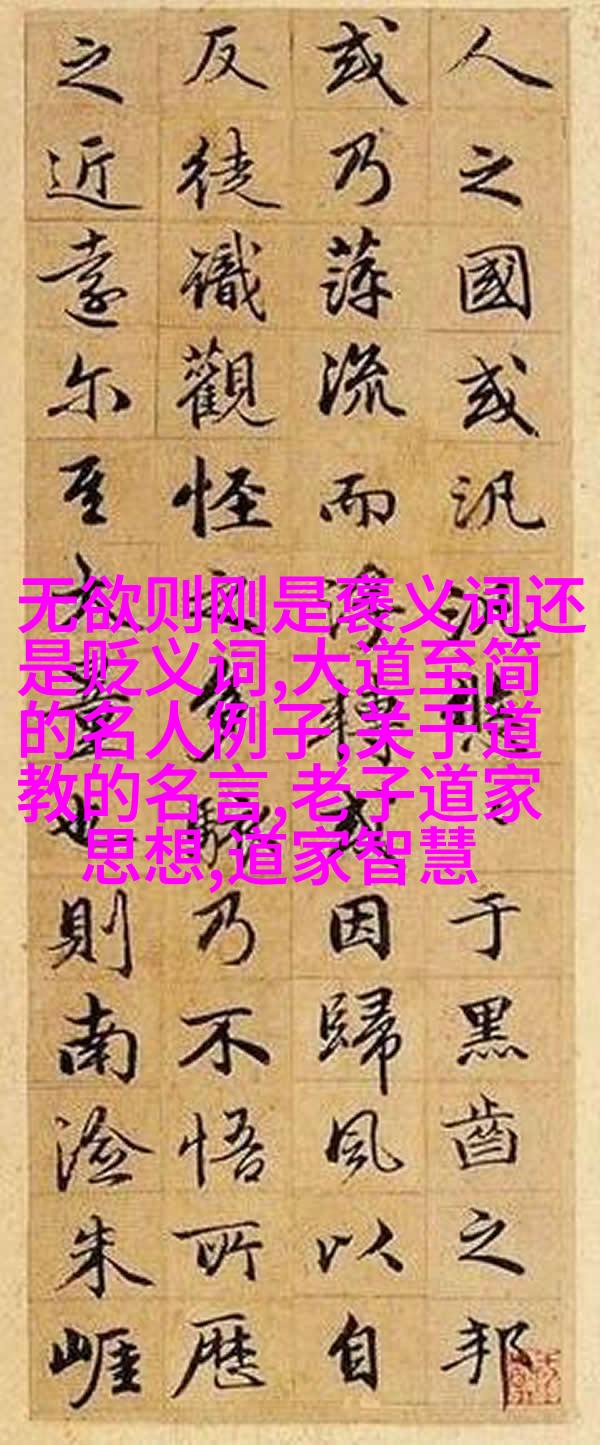 人之國或汎于黑齒之邦
或乃萍流而浮轉或因歸風以自
反徒識觀怪之多駭乃不悟所歷
之近遠尔至大量也則南澰朱崖
无欲则刚是褒义词还
是贬义词,大道至简
的名人例子,关于道
教的名言,老子道家
思想,道家智慧